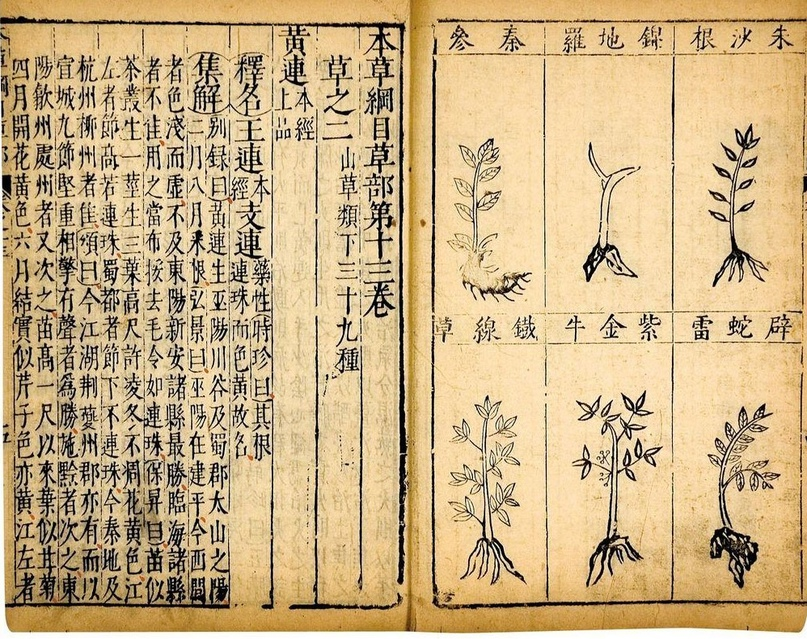 朱沙根
錦地羅
秦參
辟蛇雷
紫金牛
鐵線草
本草綱目草部第十三卷
草之二 山草類下三十九種
黃連 本經上品
釋名 王連 本經 支連 藥性 時珍曰其根連珠而色黃故名
集解 別録曰黃連生巫陽川谷及蜀郡太山之陽
二月八月采根弘景曰巫陽在建平今西間
者色淺而虛不及東陽新安諸縣最勝臨海諸縣
者不佳用之當布挼去毛令如連珠保昇曰苗似
茶叢生一莖生三葉高尺許凌冬不凋花黃色江
左者節高若連珠蜀都者節下不連珠今秦地及
杭州柳州者佳頌曰今江湖荆夔州郡亦有而以
宣城九節堅重相擊有聲者爲勝施黔者次之東
陽歙州處州者又次之苗高一尺以來葉似甘菊
四月開花黃色六月結實似芹子色亦黃江左者